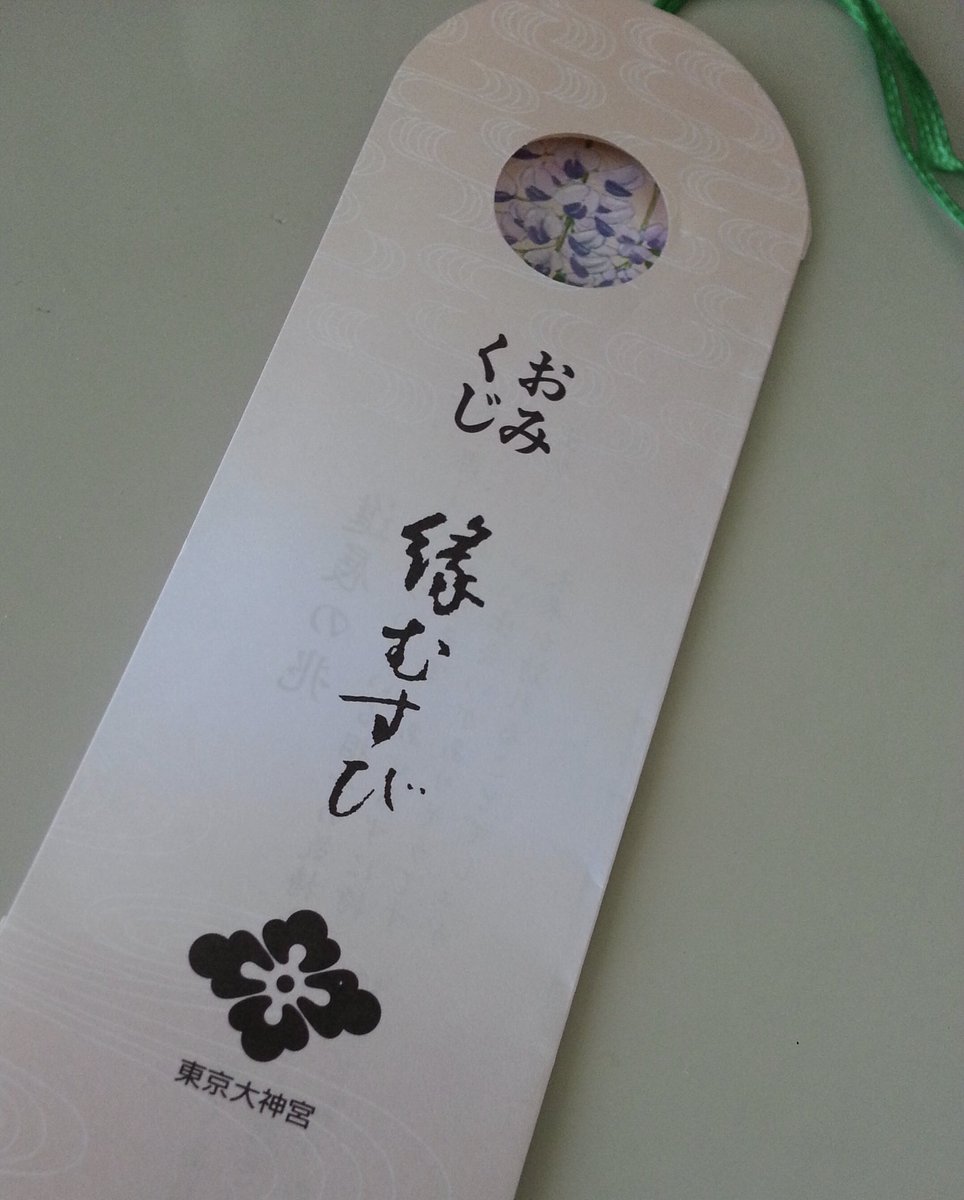 おみ
くじ
縁むすび
東京大神宮